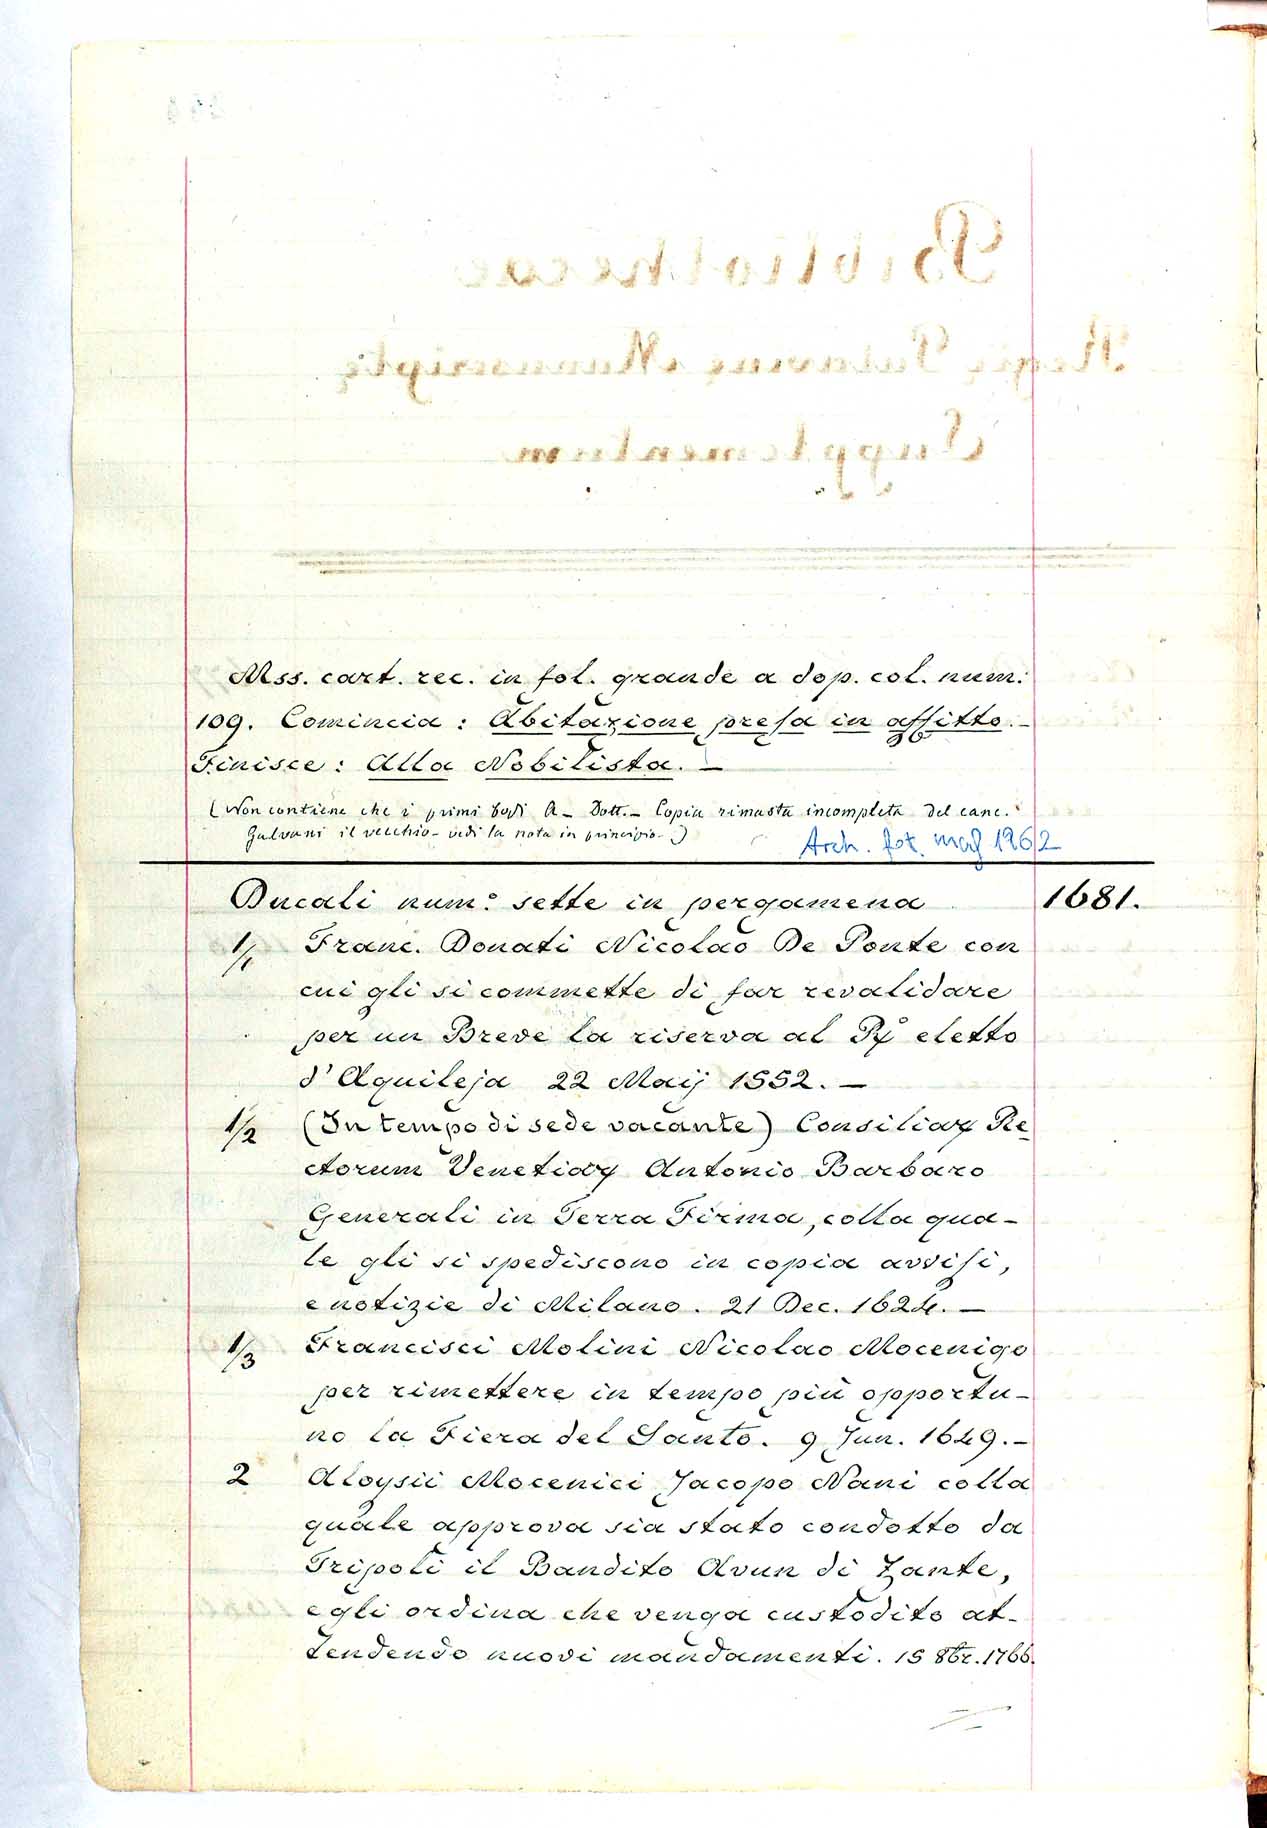 Mss. cart. rec. in fol. grande a dop. col. num:
109. Comincia: Abitazione presa in affitto. –
Finisce: Alla Nobilista. –
(Non contiene che i primi fogli A – Dott. – Copia rimasta incompleta del canc.
Galvani il vecchio – vedi la nota in principio –)
Arch. fot. mag 1962
Ducali num: sette in pergamena 1681.
1/1 Franc. Donati Nicolao De Ponte con
cui gli si commette di far revalidare
per un Breve la riserva al eletto
d'Aquileja 22 Maij 1552. –
1/2 (In tempo di sede vacante) Consiliarÿ Re
ctorum Venetiarÿ Antonio Barbaro
Generali in Terra Firma, colla qua-
le gli si spediscono in copia avvisi,
e notizie di Milano. 21 Dec. 1624. –
1/3 Francisci Molini Nicolao Mocenigo
per rimettere in tempo più opportu-
no la Fiera del Santo. 9 Jun. 1649. –
2 Aloysii Mocenici Jacopo Nani colla
quale approva sia stato condotto da
Tripoli il Bandito Avun di Zante,
e gli ordina che venga custodito at-
tendendo nuovi mandamenti. 15 8br. 1766.